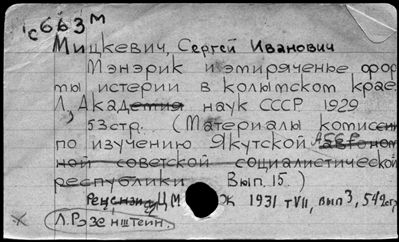 с663м
Мицкевич, Сергей Иванович
Мэнэрик и эмиряченье фор
ты истерии в колымском крае
Л, Академия наук СССР 1929
53 стр. (Материалы комиссии
по изучению Якутской АССР автоном
ной советской социалистической
республики Вып. 15.)
Рецензия ЦМ Ж 1931 т VII, вып 3, 542 стр
Л. Розенштейн.